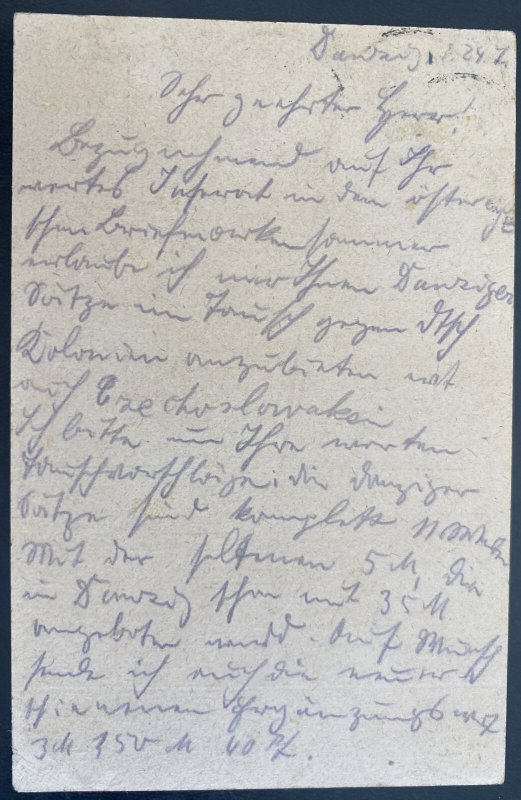 Danzig, 24.7.
Sehr geehrter Herr!
Bezugnehmend auf Ihr
wertes Inserat in dem österreichi
schen Briefmarkensammler
erlaube ich mir Ihnen Danziger
Sätze im Tausch gegen dtsch
Kolonien anzubieten evt
auch Czechoslowakei
Ich bitte um Ihre werten
Tauschvorschläge. Die Danziger
Sätze sind komplett 11 Werte
Mit der seltenen 5 M, die
in Danzig schon mit 35 M
angeboten wird. Auf Wunsch
sende ich auch die neuer
schienenen Ergänzungswerte
3M 150 M 60 Pf.